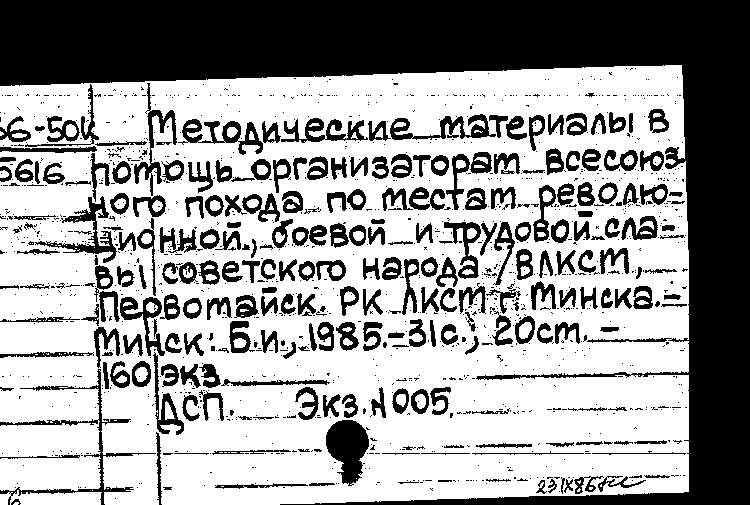 36-50К Методические материалы в
5616 помощь организаторам всесоюз-
ного похода по местам револю-
ционной, боевой и трудовой сла-
вы советского народа / ВЛКСМ,
Первомайск. РК ЛКСМ г. Минска.-
Минск: Б.и., 1985.-31с.; 20см. -
160 экз.
ДСП. Экз.N005.
23IX86г